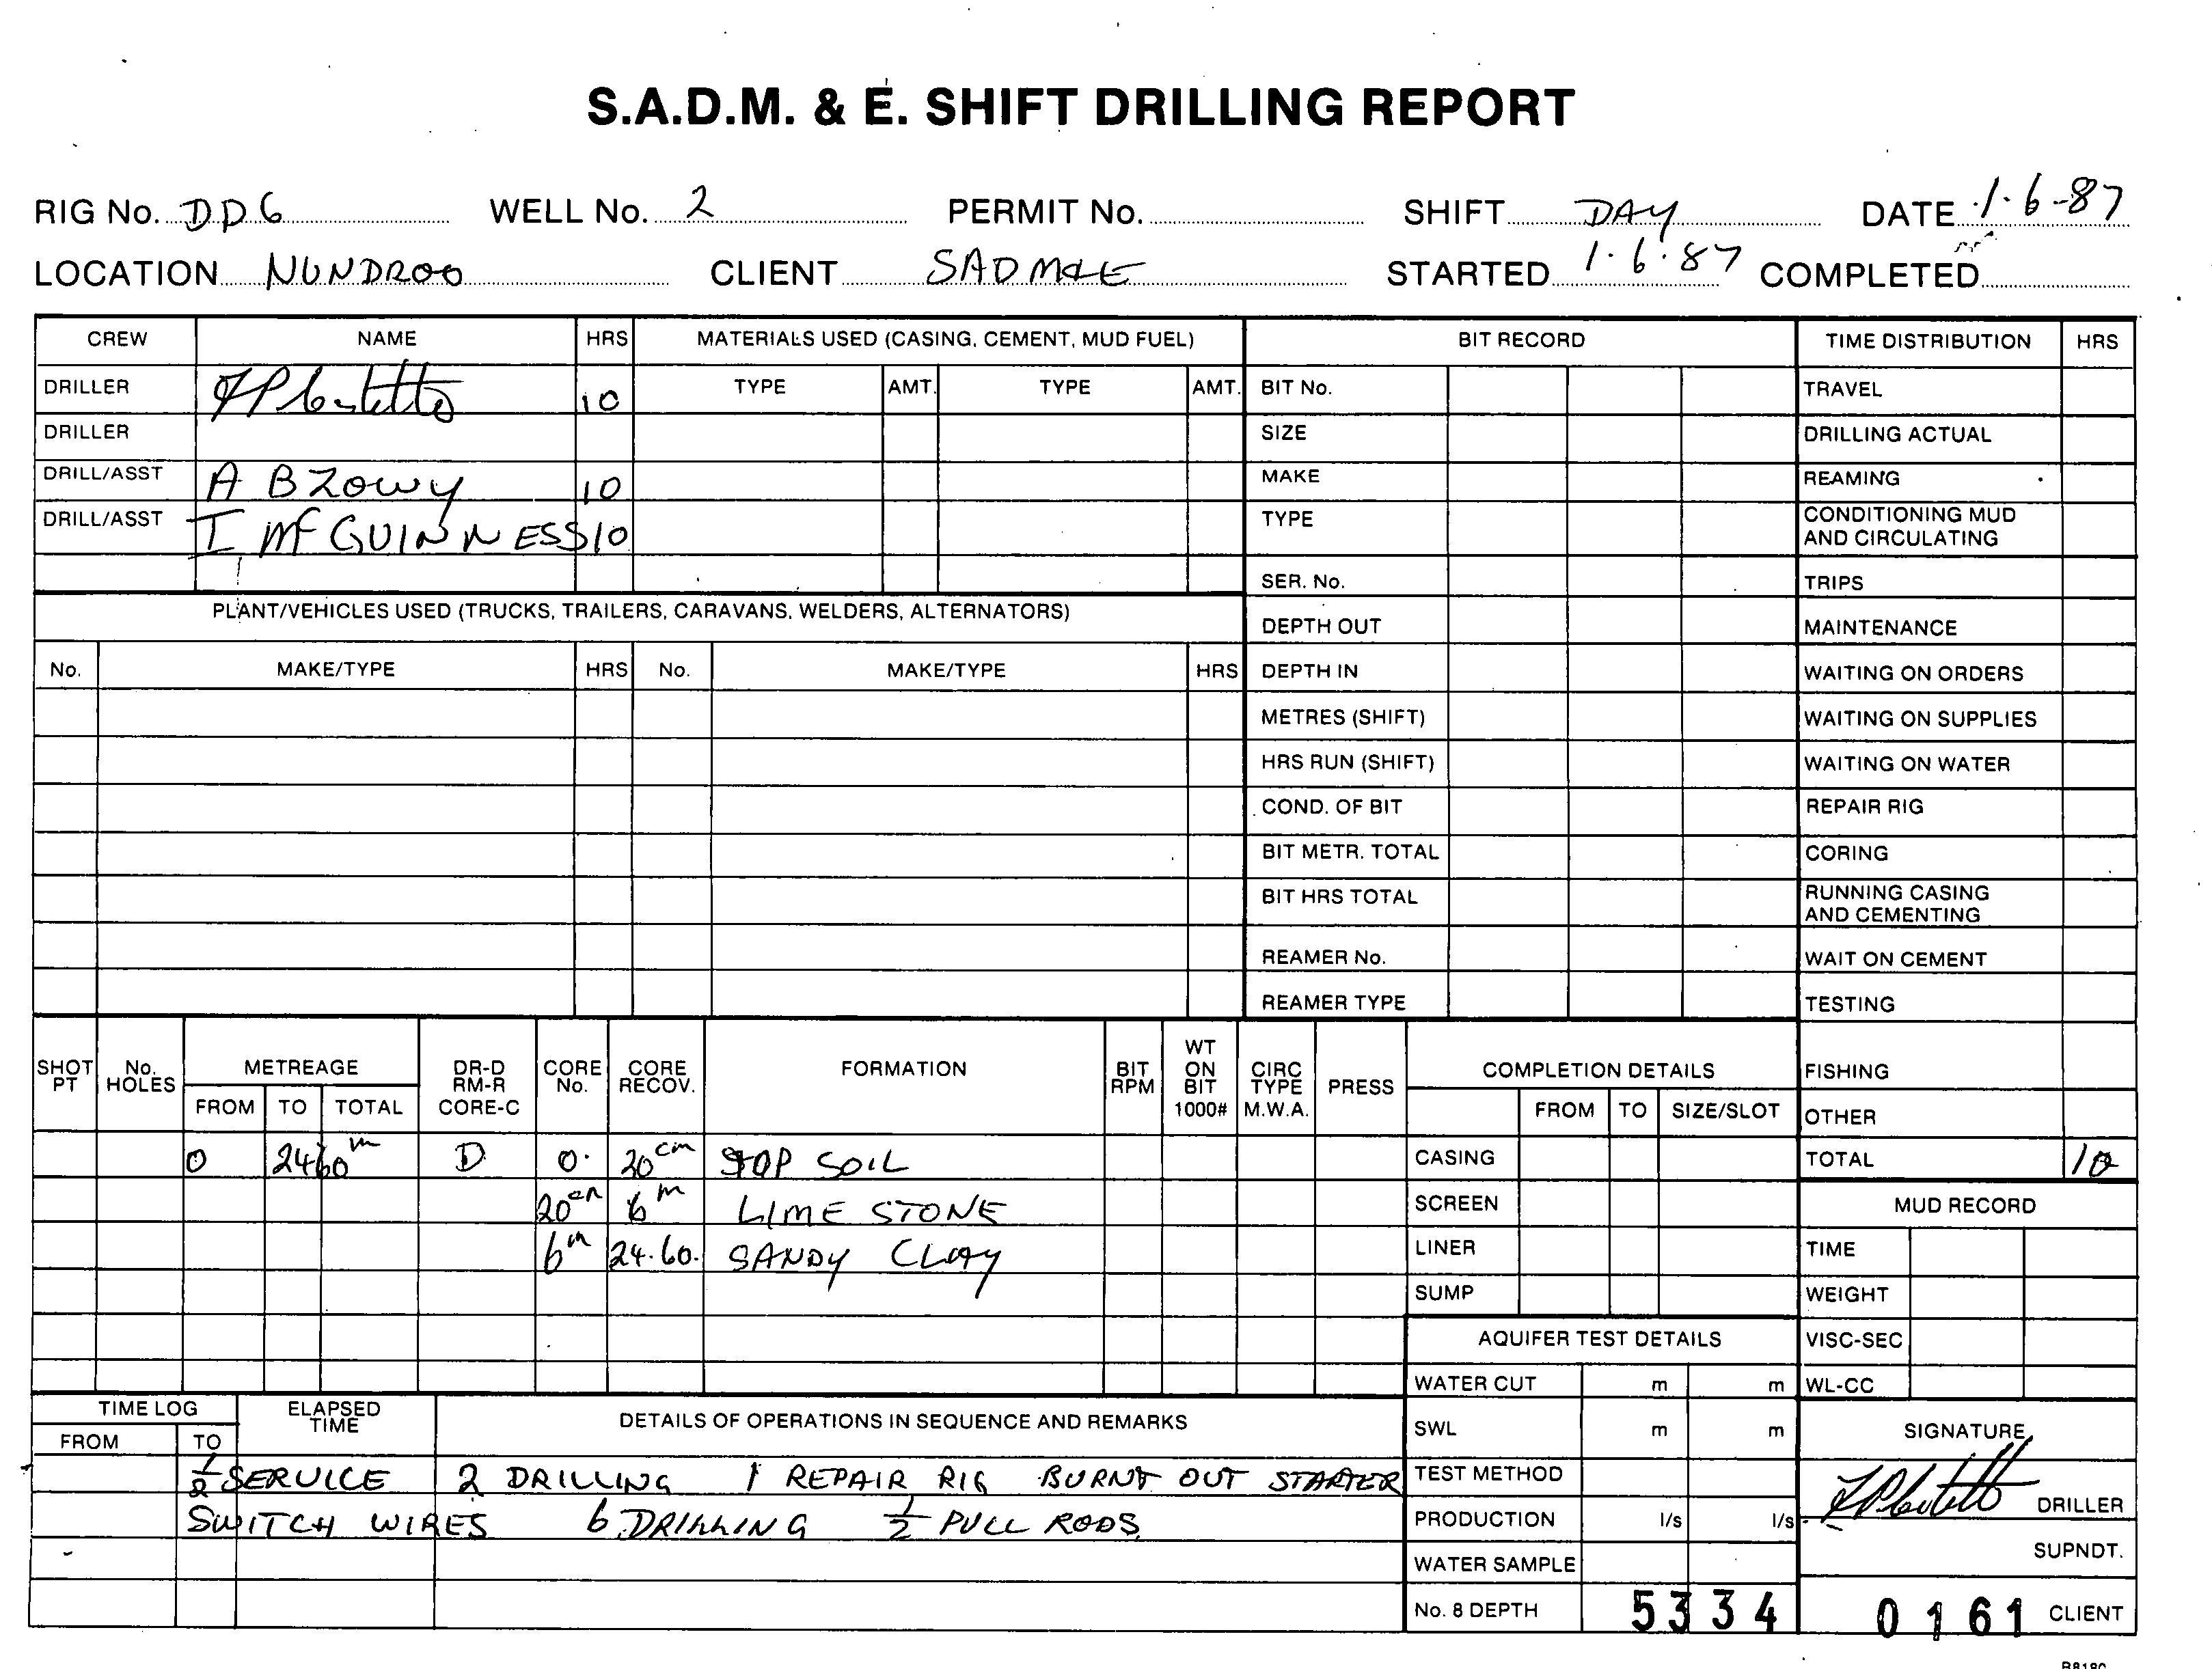 S.A.D.M. & E. SHIFT DRILLING REPORT
RIG No. DD6 WELL No. 2 PERMIT No. SHIFT DAY DATE 1-6-87
LOCATION NUNDROO CLIENT SADM&E STARTED 1.6.87 COMPLETED
CREW NAME HRS MATERIALS USED (CASING, CEMENT, MUD FUEL) BIT RECORD TIME DISTRIBUTION HRS
DRILLER 10 TYPE AMT. TYPE AMT. BIT No. TRAVEL
DRILLER SIZE DRILLING ACTUAL
DRILL/ASST A BZOWY 10 MAKE REAMING
DRILL/ASST I McGUINNESS 10 TYPE CONDITIONING MUD
AND CIRCULATING
SER. No. TRIPS
PLANT/VEHICLES USED (TRUCKS, TRAILERS, CARAVANS, WELDERS, ALTERNATORS)
DEPTH OUT MAINTENANCE
No. MAKE/TYPE HRS No. MAKE/TYPE HRS DEPTH IN WAITING ON ORDERS
METRES (SHIFT) WAITING ON SUPPLIES
HRS RUN (SHIFT) WAITING ON WATER
COND. OF BIT REPAIR RIG
BIT METR. TOTAL CORING
BIT HRS TOTAL RUNNING CASING
AND CEMENTING
REAMER No. WAIT ON CEMENT
REAMER TYPE TESTING
SHOT PT No. HOLES METREAGE DR-D RM-R CORE-C CORE No. CORE RECOV. FORMATION BIT RPM WT ON BIT 1000# CIRC TYPE M.W.A. PRESS COMPLETION DETAILS FISHING
FROM TO TOTAL FROM TO SIZE/SLOT OTHER
0 2460m D 0. 20cm TOP SOIL CASING TOTAL 10
20cm 6m LIME STONE SCREEN MUD RECORD
6m 24.60. SANDY CLAY LINER TIME
SUMP WEIGHT
AQUIFER TEST DETAILS VISC-SEC
WATER CUT m m WL-CC
TIME LOG ELAPSED TIME DETAILS OF OPERATIONS IN SEQUENCE AND REMARKS SWL m m SIGNATURE
FROM TO
1/2 SERVICE 2 DRILLING 1 REPAIR RIG BURNT OUT STARTER TEST METHOD DRILLER
SWITCH WIRES 6 DRILLING 1/2 PULL RODS PRODUCTION l/s l/s
SUPNDT.
WATER SAMPLE
No. 8 DEPTH 5334 0161 CLIENT